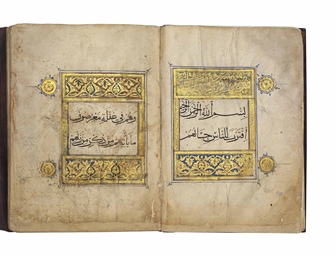 بسم الله الرحمن الرحيم
اقترب للناس حسابهم
وهم في غفلة معرضون
ما يأتيهم من ذكر من ربهم